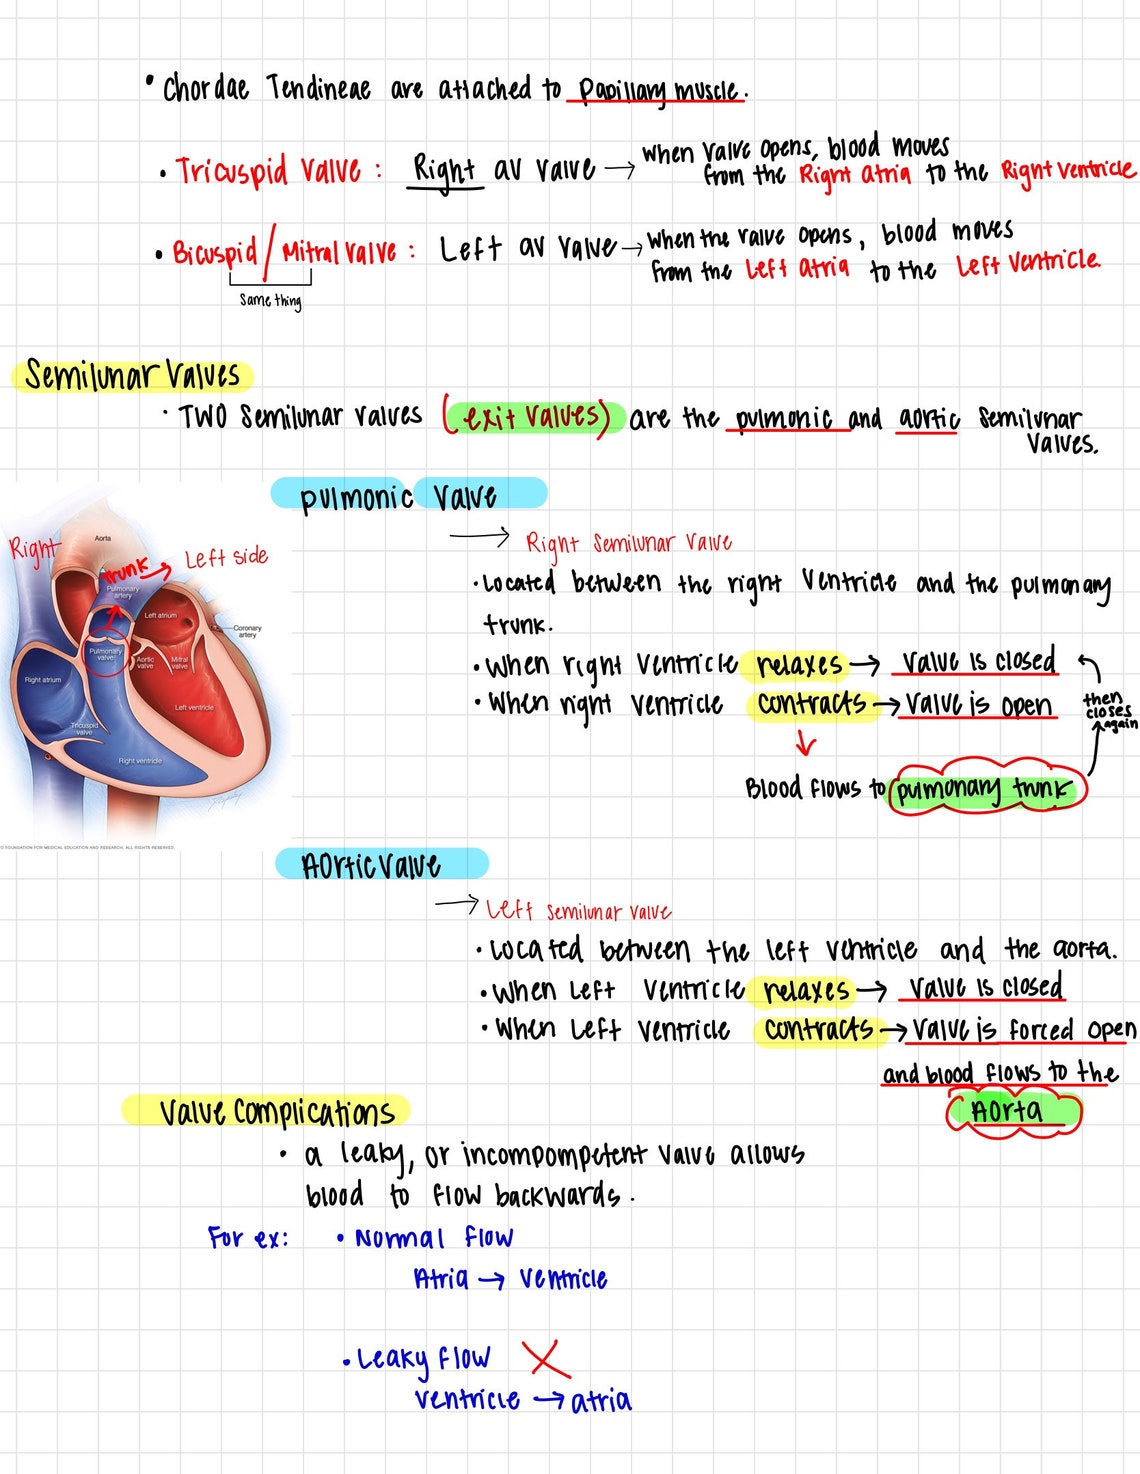 • Chordae Tendineae are attached to Papillary muscle.
• Tricuspid valve: Right av valve → when valve opens, blood moves
from the Right atria to the Right ventricle
• Bicuspid/Mitral valve: Left av valve → when the valve opens, blood moves
from the Left atria to the Left ventricle.
same thing
Semilunar Valves
• TWO semilunar valves (exit valves) are the pulmonic and aortic semilunar
valves.
pulmonic valve
→ Right semilunar valve
• Located between the right ventricle and the pulmonary
trunk.
• When right ventricle relaxes → valve is closed
• When right ventricle contracts → valve is open
then
closes
again
Blood flows to pulmonary trunk
Right
Aorta
trunk → Left side
Pulmonary
artery
Left atrium
Coronary
artery
Pulmonary
valve
Aortic
valve
Mitral
valve
Right atrium
Left ventricle
Tricuspid
valve
Right ventricle
© FOUNDATION FOR MEDICAL EDUCATION AND RESEARCH. ALL RIGHTS RESERVED.
Aortic valve
→ Left semilunar valve
• Located between the left ventricle and the aorta.
• When Left ventricle relaxes → valve is closed
• When Left ventricle contracts → valve is forced open
and blood flows to the
Aorta
Valve Complications
• a leaky, or incompompetent valve allows
blood to flow backwards.
For ex: • Normal flow
Atria → ventricle
• Leaky flow X
ventricle → atria